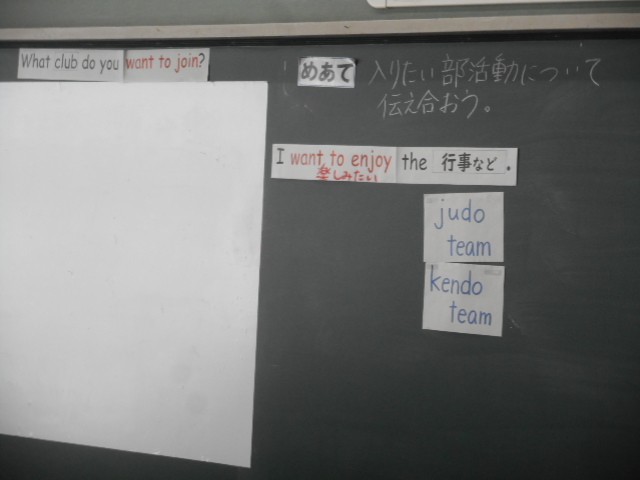 What club do you want to join?
めあて 入りたい部活動について
伝え合おう。
I want to enjoy the 行事など.
楽しみたい
judo
team
kendo
team